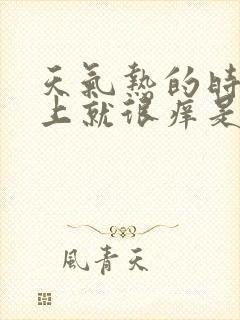 天氣熱的時
上就很癢是
風青天